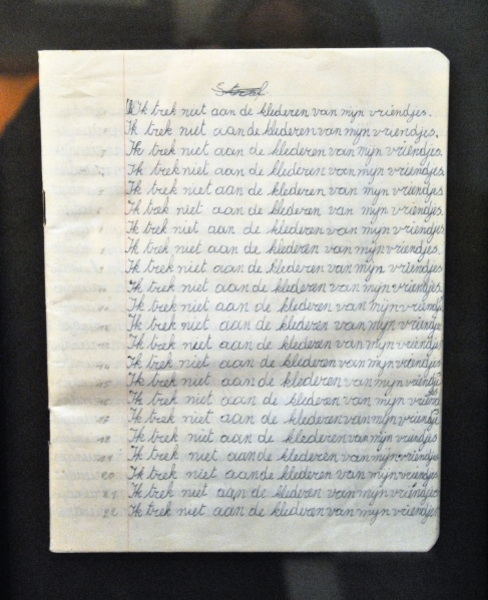 Straf
Ik trek niet aan de klederen van mijn vriendjes.
Ik trek niet aan de klederen van mijn vriendjes.
Ik trek niet aan de klederen van mijn vriendjes.
Ik trek niet aan de klederen van mijn vriendjes.
Ik trek niet aan de klederen van mijn vriendjes.
Ik trek niet aan de klederen van mijn vriendjes.
Ik trek niet aan de klederen van mijn vriendjes.
Ik trek niet aan de klederen van mijn vriendjes.
Ik trek niet aan de klederen van mijn vriendjes.
Ik trek niet aan de klederen van mijn vriendjes.
Ik trek niet aan de klederen van mijn vriendjes
Ik trek niet aan de klederen van mijn vriendje
Ik trek niet aan de klederen van mijn vriendje
14 Ik trek niet aan de klederen van mijn vriendjes
15 Ik trek niet aan de klederen van mijn vriendje
16 Ik trek niet aan de klederen van mijn vriend
17 Ik trek niet aan de klederen van mijn vriendje
18 Ik trek niet aan de klederen van mijn vriendjes
19 Ik trek niet aan de klederen van mijn vriendjes
20 Ik trek niet aan de klederen van mijn vriendjes
21 Ik trek niet aan de klederen van mijn vriendjes
22 Ik trek niet aan de klederen van mijn vriendjes